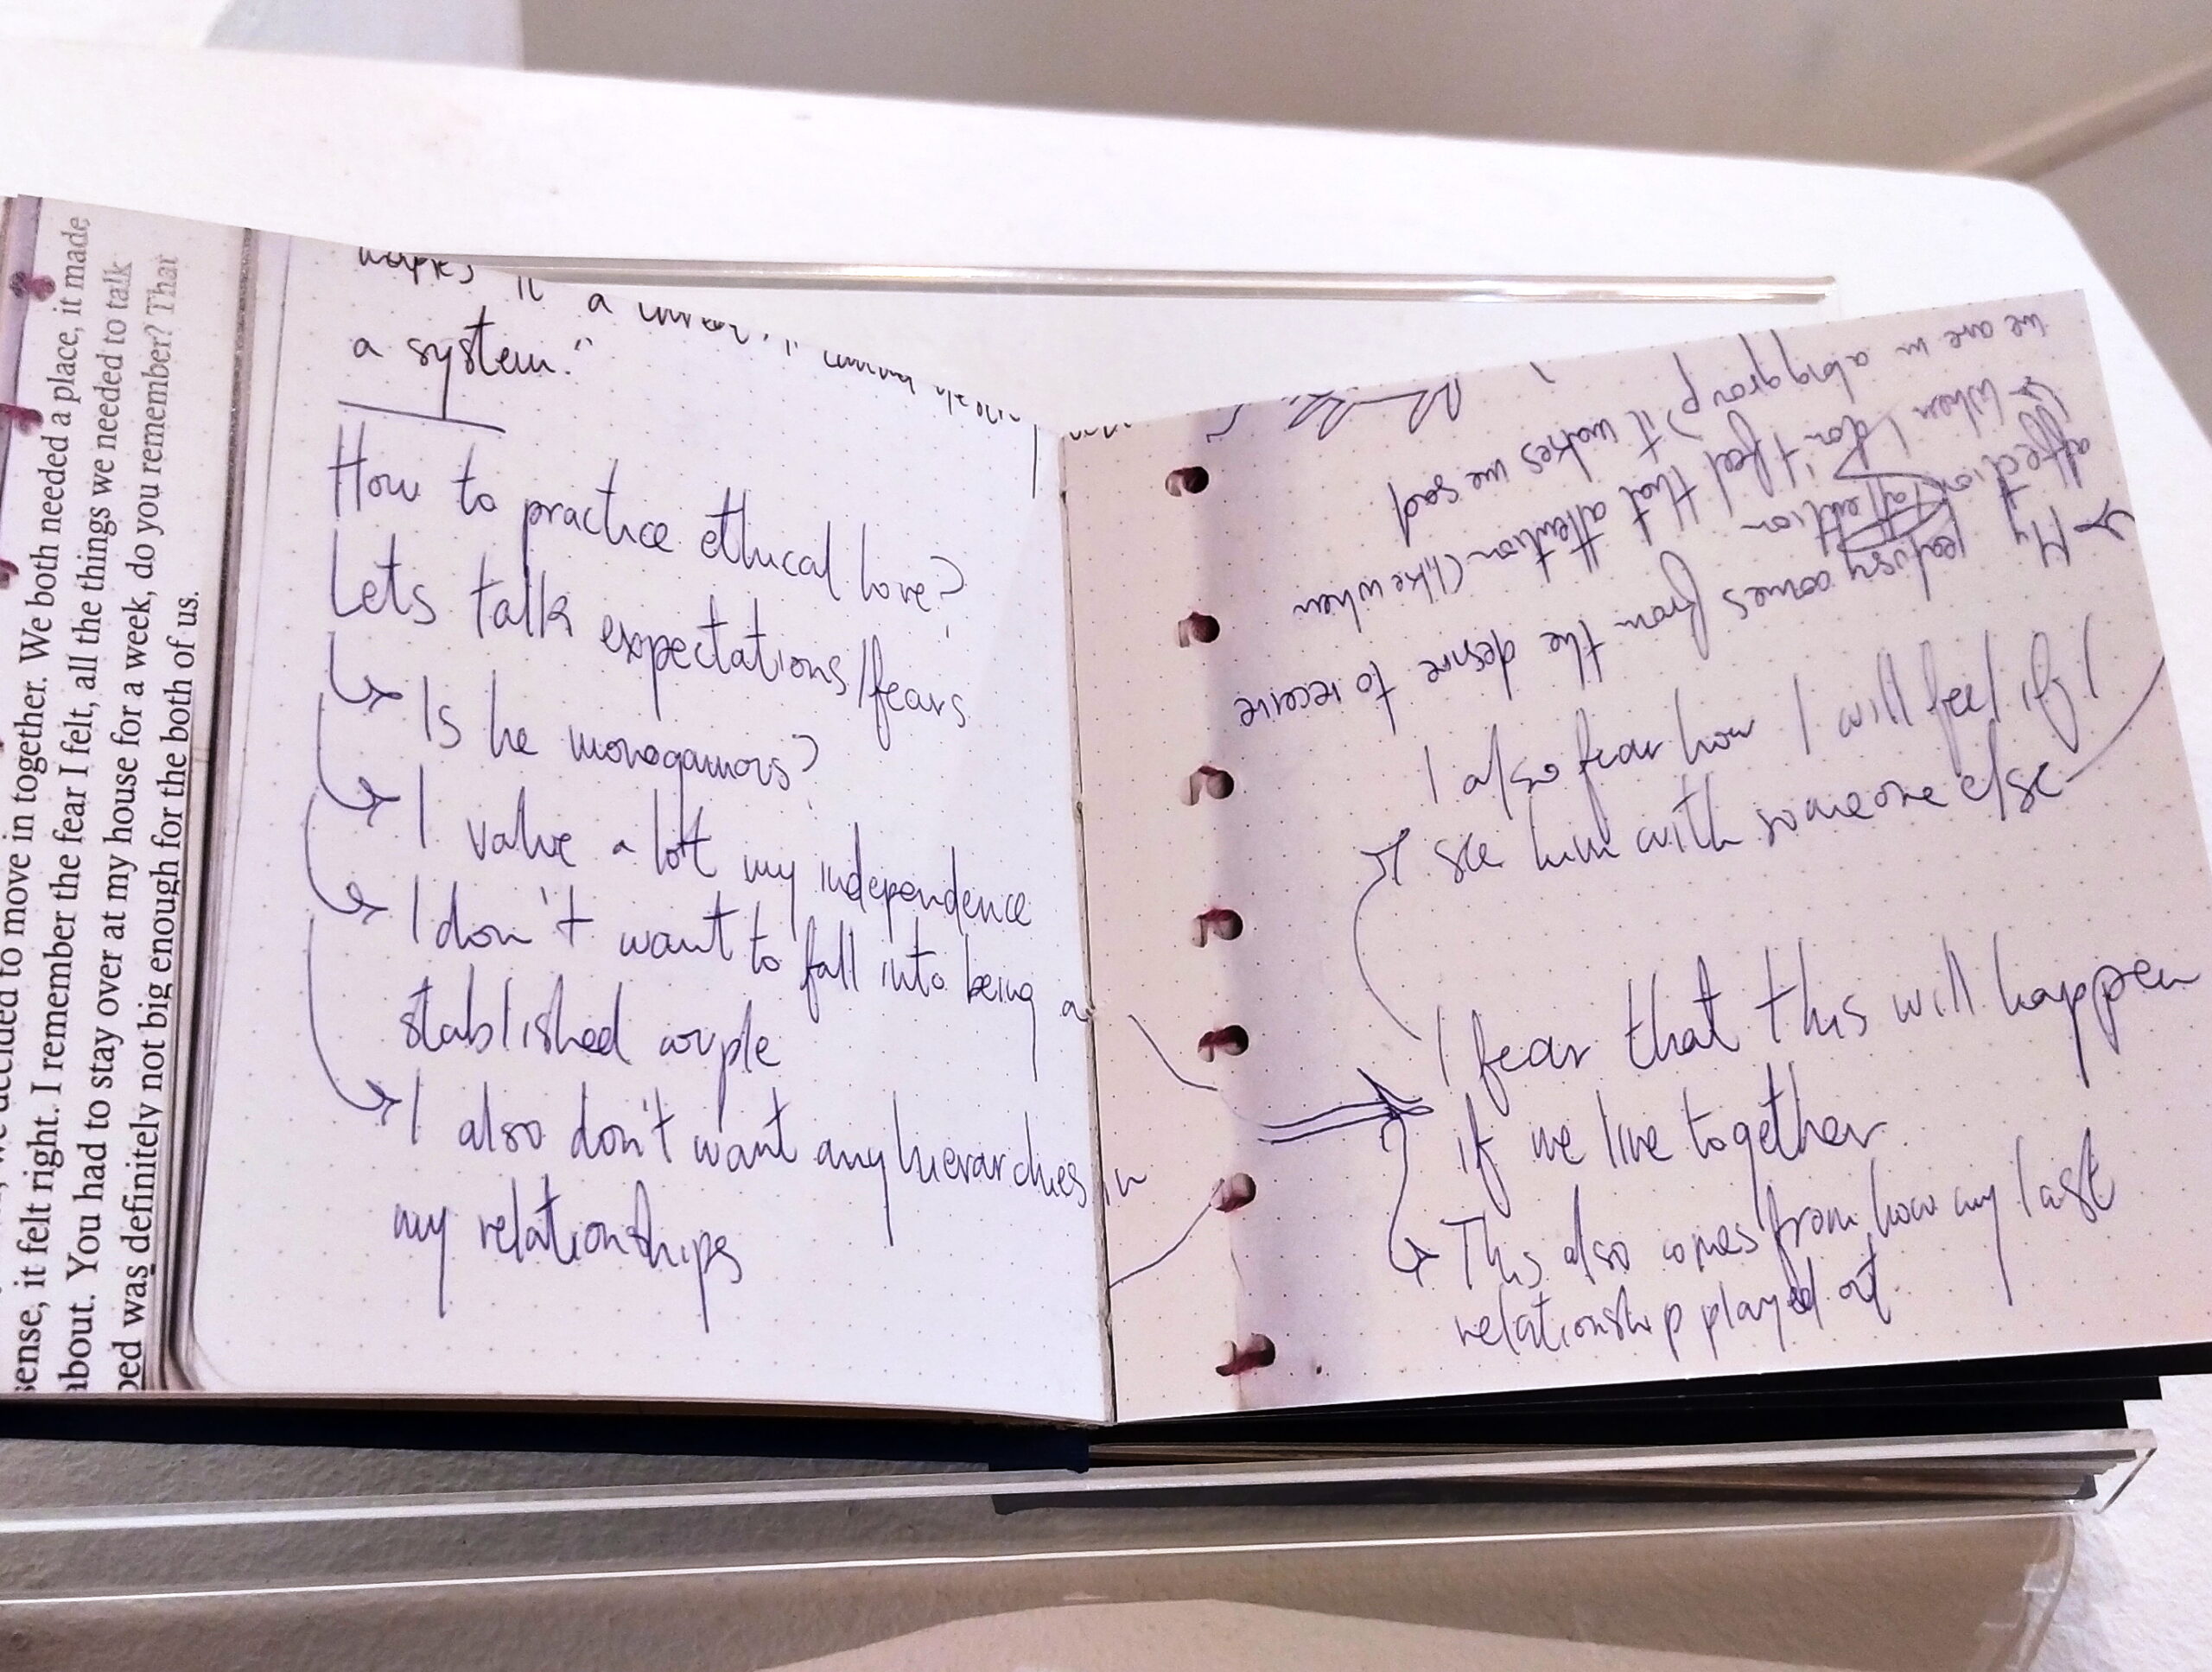 decided to move in together. We both needed a place, it made
sense, it felt right. I remember the fear I felt, all the things we needed to talk
about. You had to stay over at my house for a week, do you remember? That
bed was definitely not big enough for the both of us.
a
a system."
How to practice ethical love?
Lets talk expectations/fears
Is he monogamous?
I value a lot my independence
I don't want to fall into being a
stablished couple
I also don't want any hierarchies in
my relationships
I fear that this will happen
if we live together
This also comes from how my last
relationship played out
I also fear how I will feel if I
see him with someone else
My jealousy comes from the desire to receive
affection attention
When I don't feel that attention (like when
we are in a big group) it makes me sad